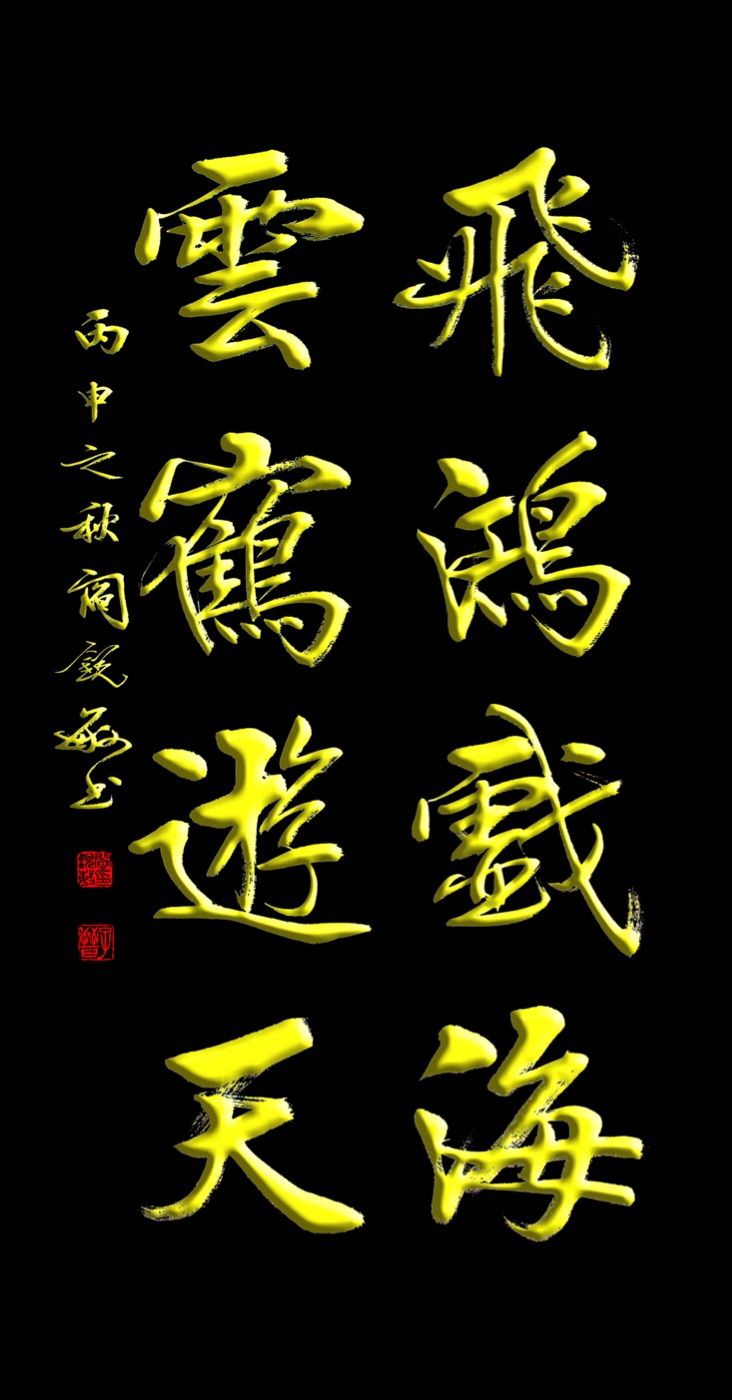 飛鴻戲海
雲鶴遊天
丙申之秋閻銳敏書